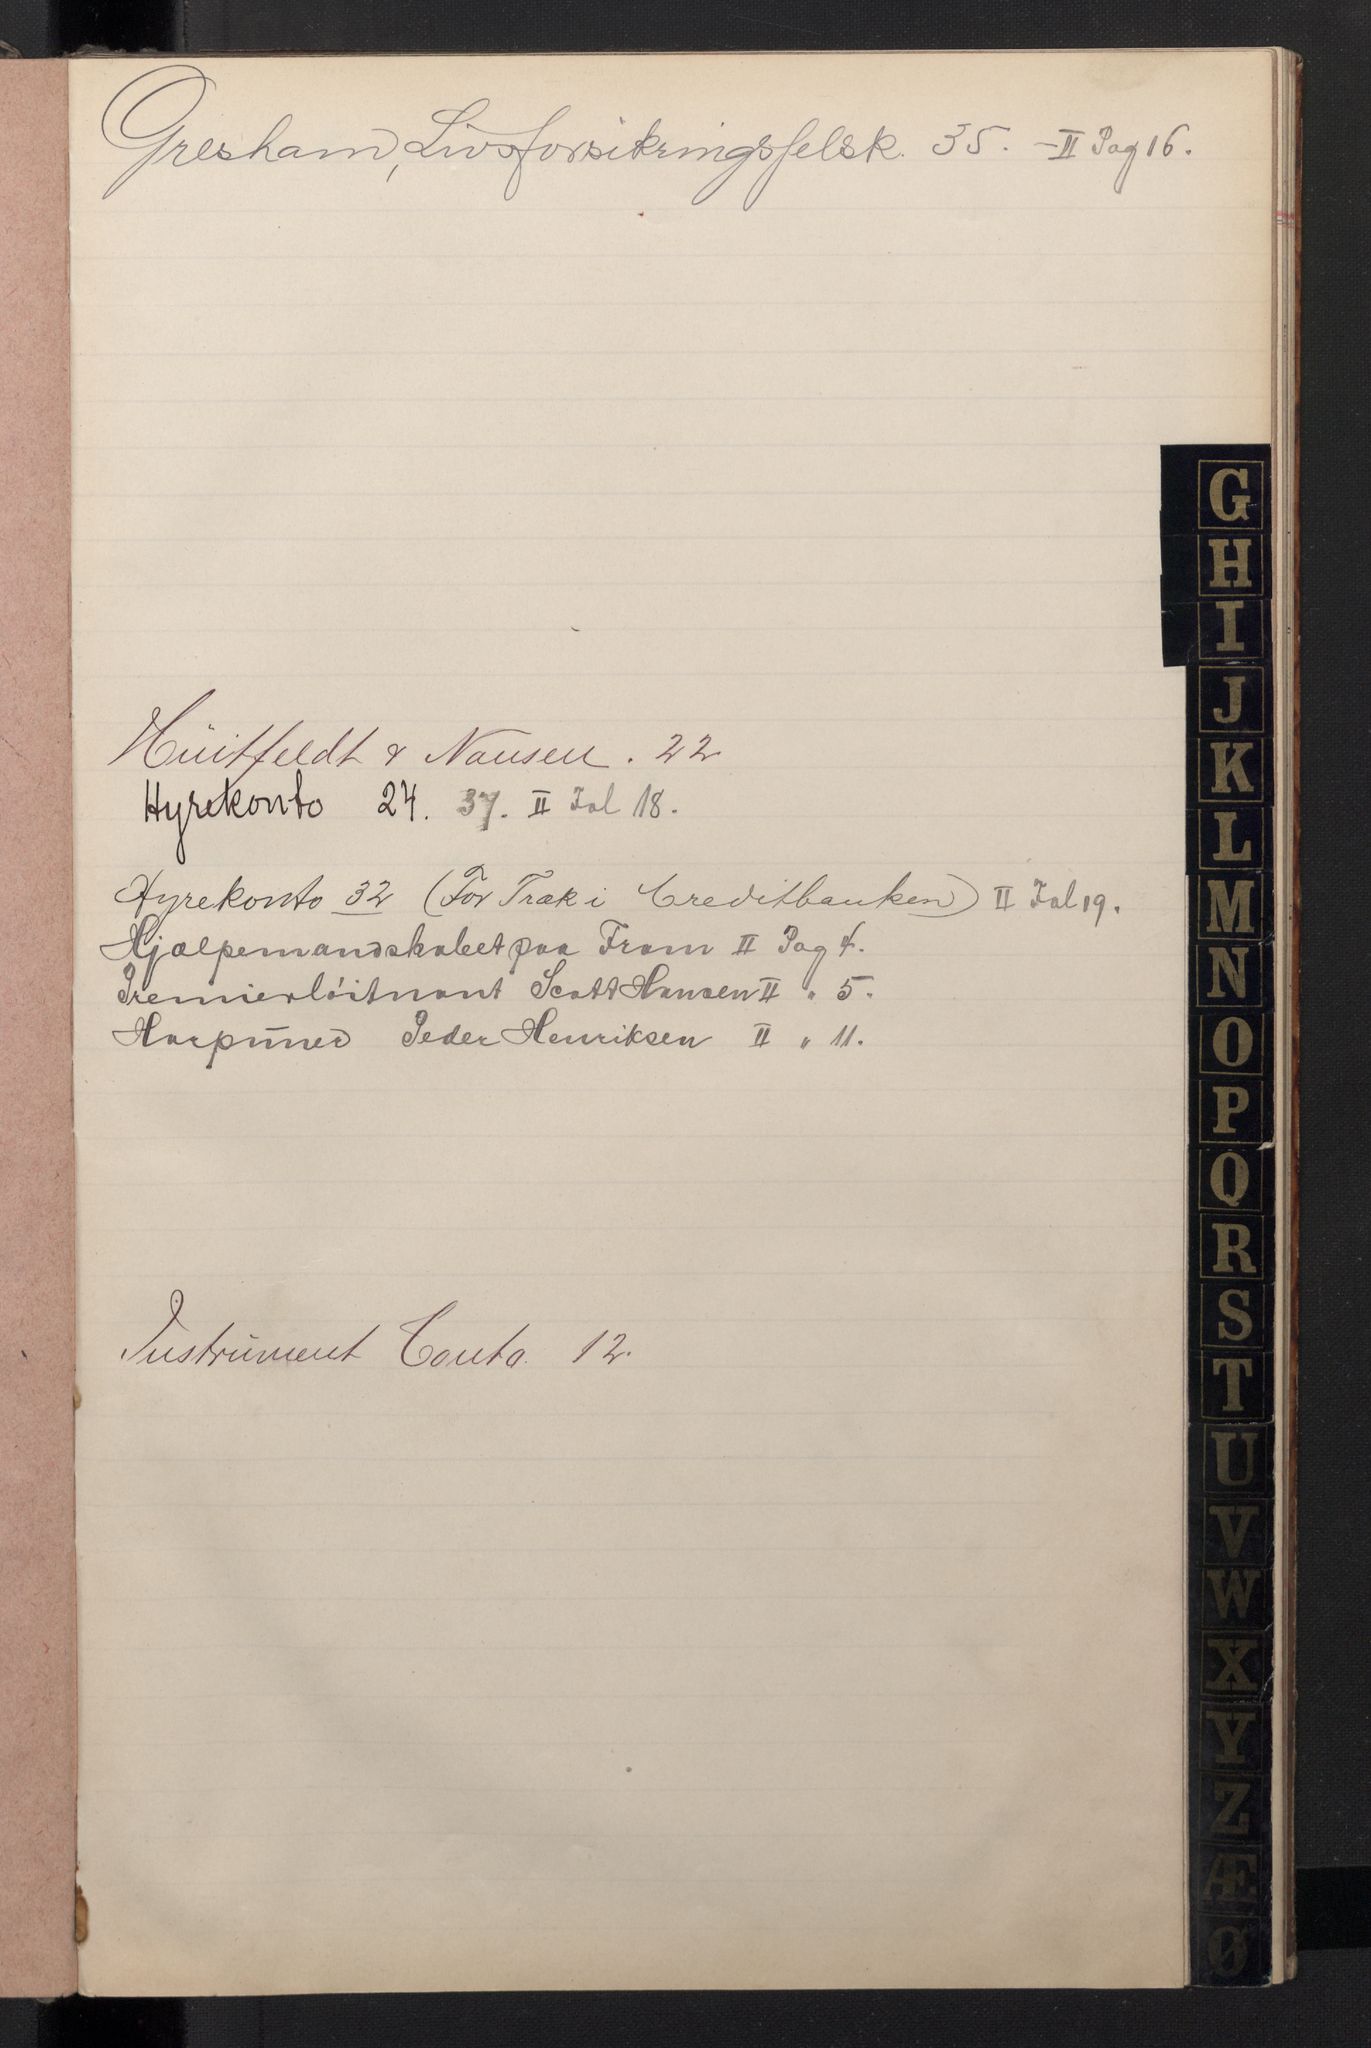 Gresham, Livsforsikringsselsk. 35. – II Pag 16.
Hüitfeldt & Nansen. 22
Hyrekonto 24. 37. II Fol 18.
Hyrekonto 32 (For Træk i Creditbanken) II Fol 19.
Hjælpemandskabet paa Fram II Pag 4.
Premierløitnant Scott Hansen II " 5.
Harpuner Peder Henriksen II " 11.
Instrument Conto. 12.
G
H
I
J
K
L
M
N
O
P
Q
R
S
T
U
V
W
X
Y
Z
Æ
Ø